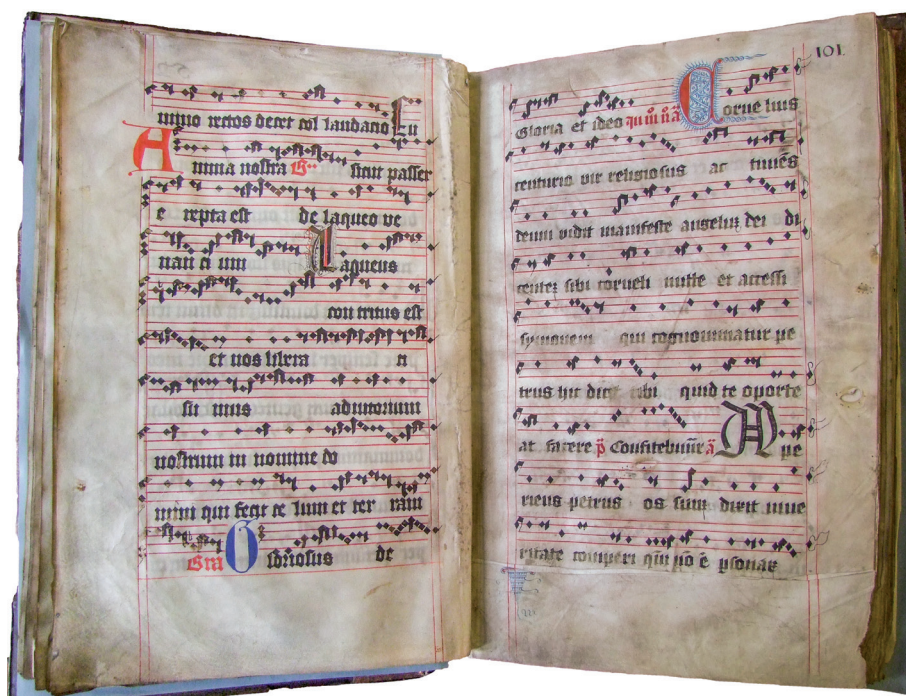 mino rectos decet col laudatio Eu
Anima nostra Gr sicut passer
e repta est de laqueo ve
nan ci um Laqueus
con tritus est
et nos libera ti
su mus adiutorium
nostrum in nomine do
mini qui fecit ce lum et ter ram
Gra Gloriosus de
101.
Gloria et ideo Corne lius
centurio vir religiosus ac timēs
deum vidit manifeste angelum dei di
centem sibi corneli mitte et accersi
symonem qui cognominatur pe
trus hic dicet tibi quid te oporte
at facere p̄ Confitebunt a Ape
riens petrus os suum dixit in ve
ritate comperi qm̄ nō ē psonar